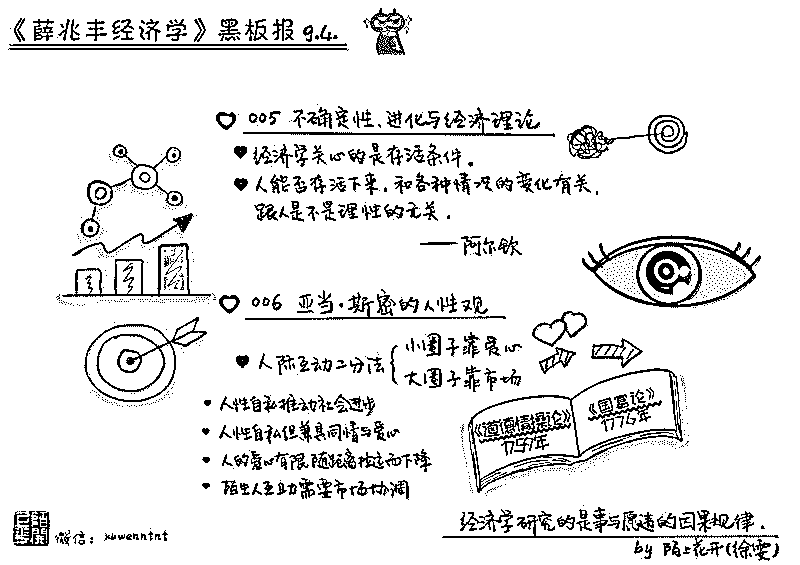 《薛兆丰经济学》黑板报 9.4.
005 不确定性、进化与经济理论
经济学关心的是存活条件。
人能否存活下来，和各种情况的变化有关，
跟人是不是理性的无关。
——阿尔钦
006 亚当·斯密的人性观
人际互动二分法
小圈子靠爱心
大圈子靠市场
人性自私推动社会进步
人性自私但兼具同情与爱心
人的爱心有限随距离拉远而下降
陌生人互助需要市场协调
《道德情操论》
1759年
《国富论》
1776年
经济学研究的是事与愿违的因果规律.
by 陌上花开(徐雯)
微信: xuwenntnt